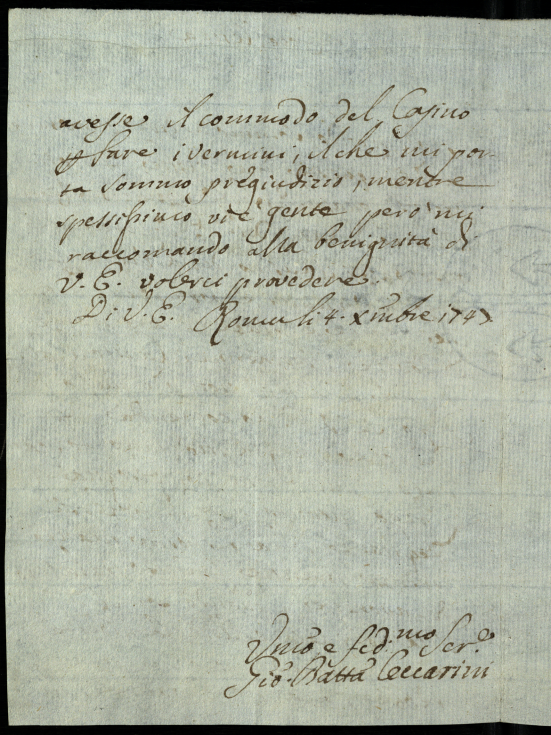 avesse il commodo del Casino
p fare i vermini, il che mi por-
ta sommo pregiudizio, mentre
spessissimo vi è gente però mi
raccomando alla benignità di
V. E. volerci provedere.
Di V. E. Roma li 4. Xmbre 1747.
Vmo e fed.mo Ser.e
Gio. Batta Ceccarini